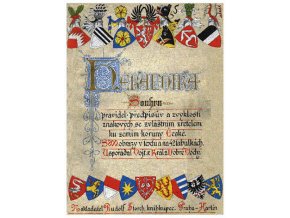 Heraldika
Souhrn
pravidel, předpisův a zvyklostí
znakových se zvláštním zřetelem
ku zemím koruny České
S 1200 obrazy v textu a na 42 tabulkách
Uspořádal Vojt. Král z Dobré Vody
Nakladatel Rudolf Storch, knihkupec, Praha-Karlín